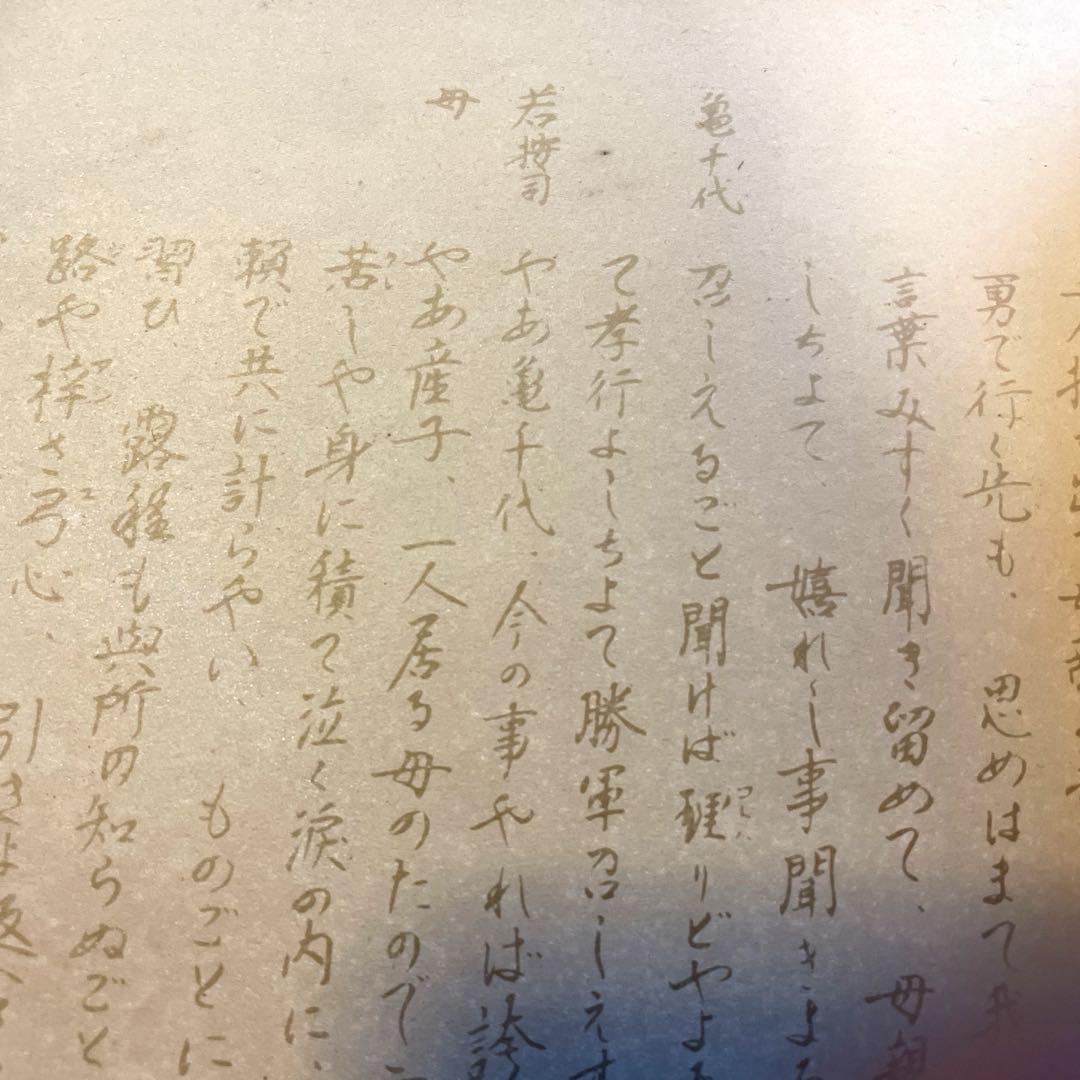 勇で行く先も、 思めはまて我
言葉みすく聞き留めて、 母親
しちよて 嬉れし事聞きよる
亀千代 召しえるごと聞けば理リどやよる
て孝行よしちよて勝軍召しえす
若按司 やあ亀千代、今の事やれば誇
母 やあ産子、一人居る母のたので
苦しや身に積て泣く涙の内に、
頼で共に計らやい ものごとに
習ひ 露程も與所の知らぬごと
路や梓さ弓心、 引きよ返